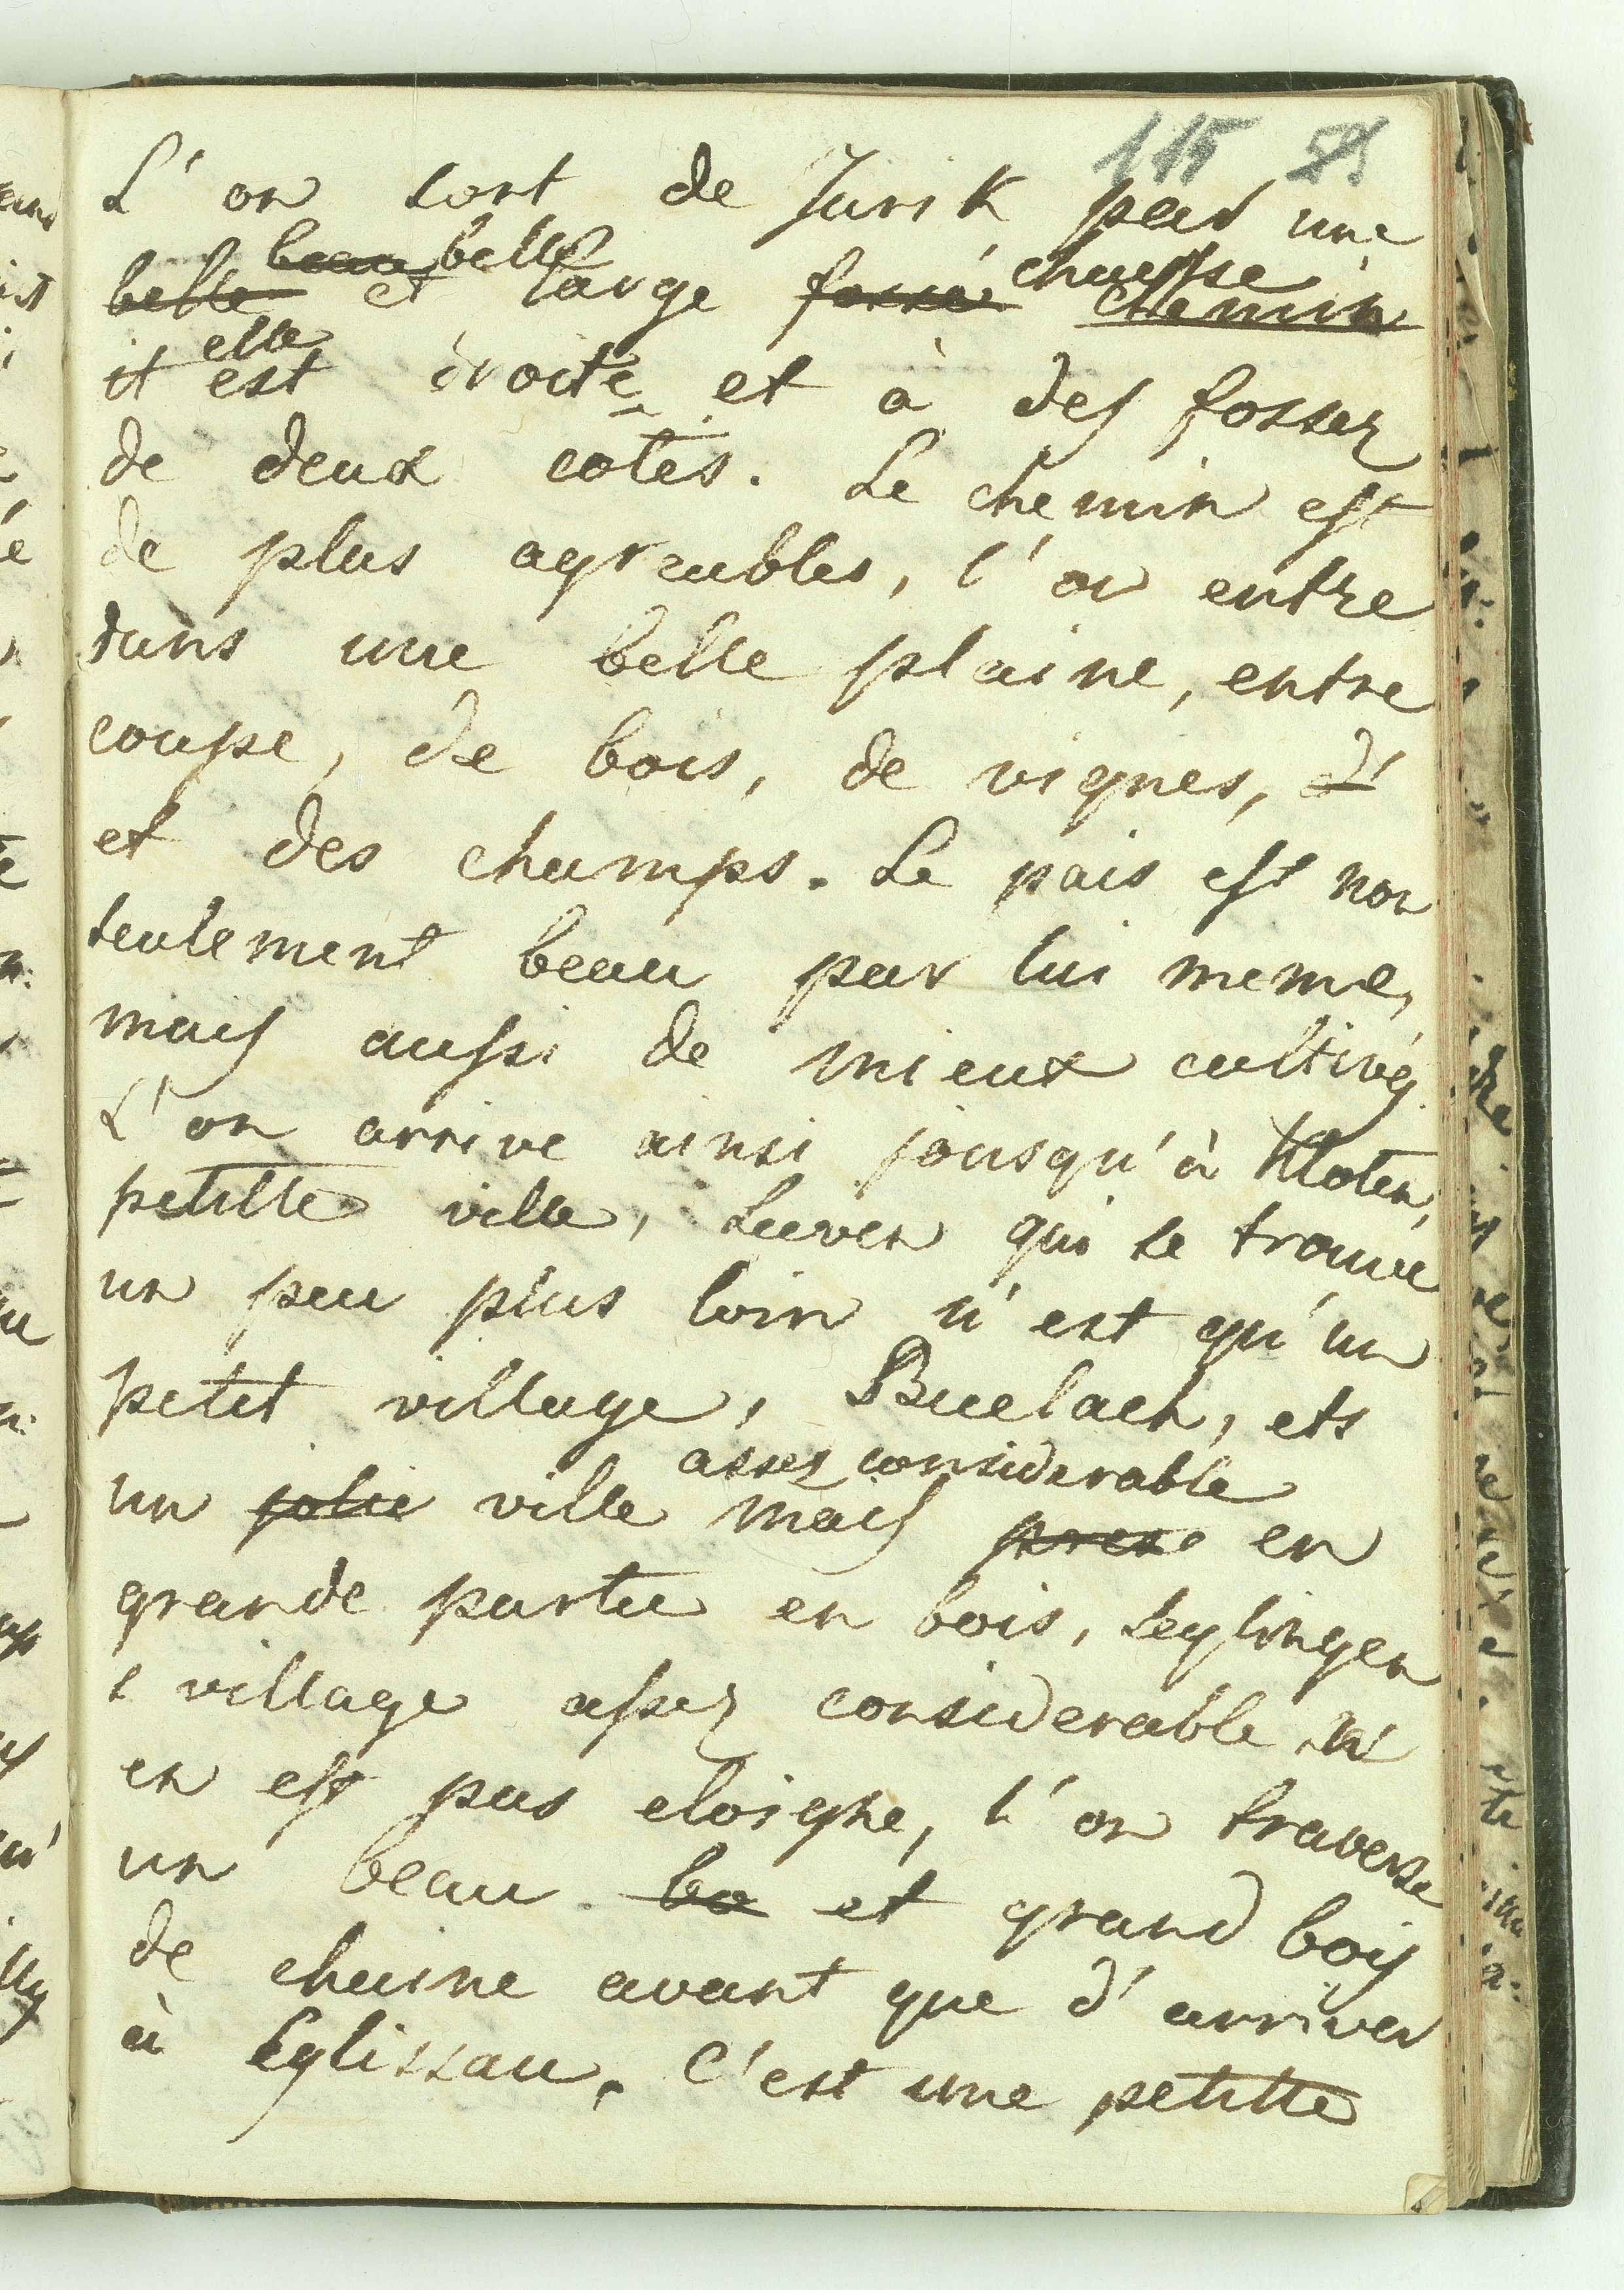 115
L'on sort de Jurik par une
beau belle chausse
belle et large fossé chemin
elle
il est droite et à des fossez
de deux cotés. Le chemin est
de plus agreables, l'on entre
dans une belle plaine, entre
coupe, de bois, de vignes, d'
et des champs. Le pais est non
seulement beau par lui meme,
mais aussi de mieux cultivés.
L'on arrive ainsi jousqu'à Kloten,
petitte ville, Seeven qui se trouve
un peu plus loin n'est qu'un
petit village, Buelach, ets
assez considerable
un jolie ville mais en
grande partie en bois, Seglingen
village assez considerable n'
en est pas eloigne, l'on traverse
un beau bo et grand bois
de chaine avant que d'arriver
à Eglissau. C'est une petitte